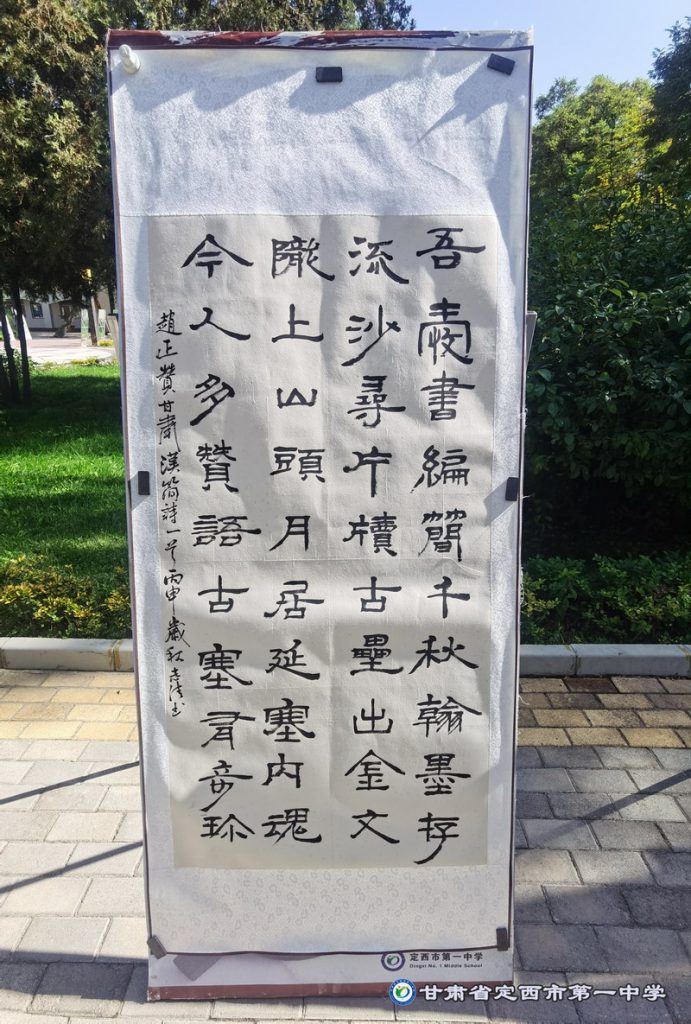 吾愛書編簡千秋翰墨存
流沙尋片牘古壘出金文
隴上山頭月居延塞内魂
今人多贊語古塞有奇珍
趙正贊甘肅漢簡詩一首丙申歲秋
定西市第一中学
Dingxi No. 1 Middle School
甘肃省定西市第一中学